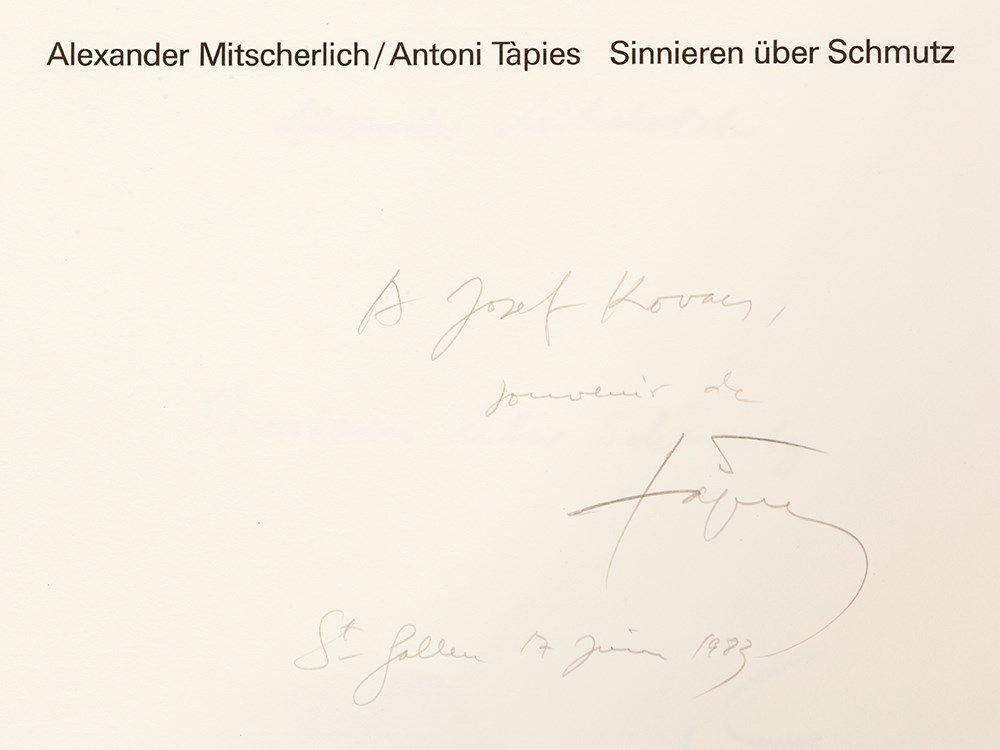 Alexander Mitscherlich/Antoni Tàpies Sinnieren über Schmutz
A Josef Kovacs,
souvenir de
Tàpies
St Gallen 17 Juin 1983